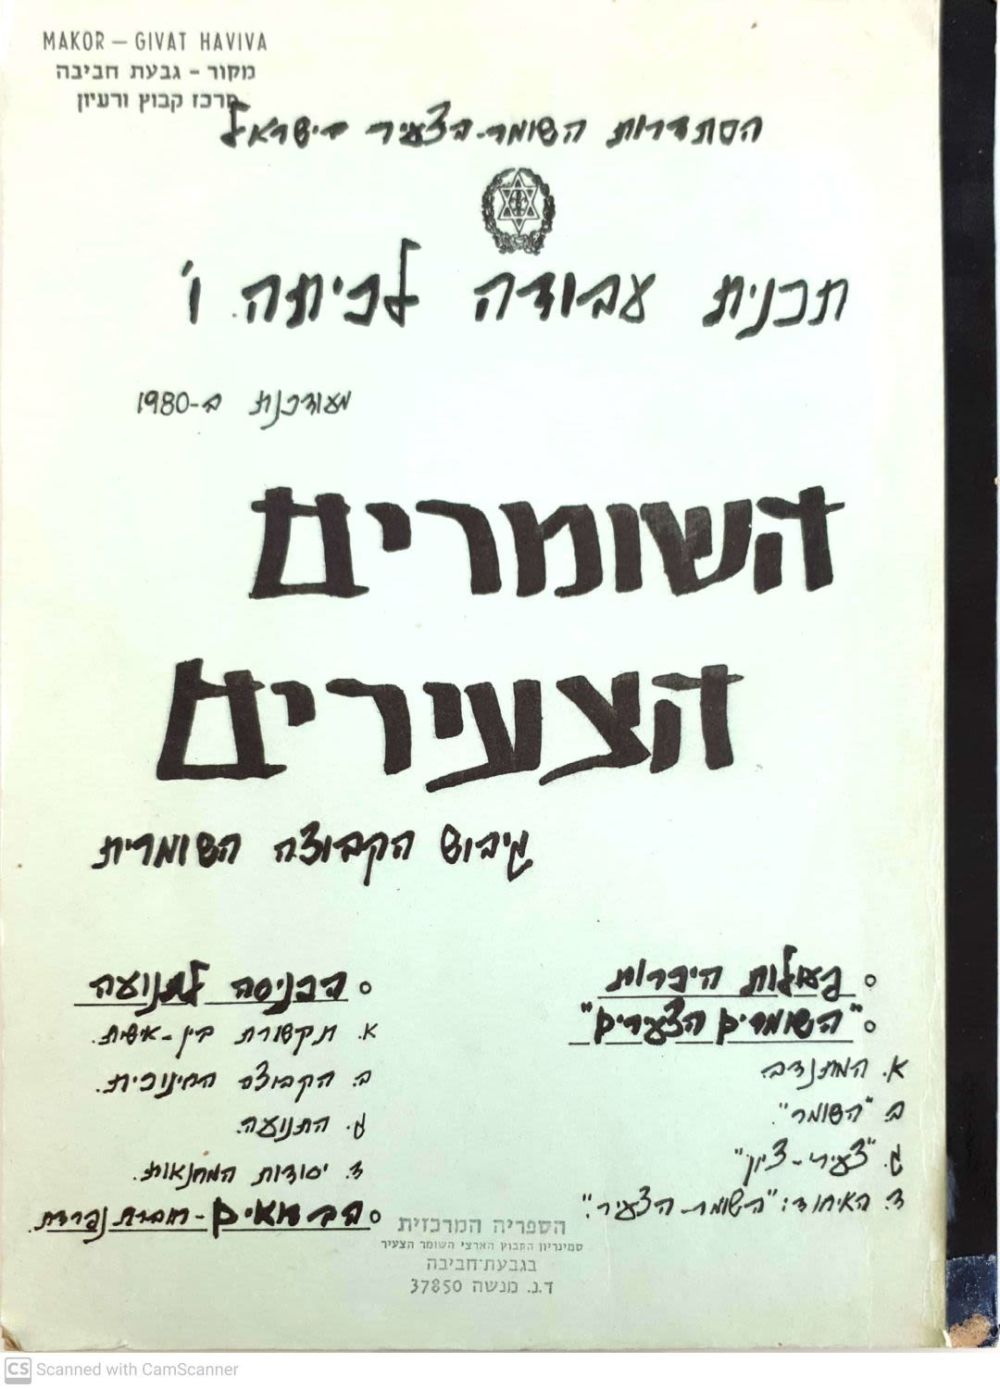 MAKOR – GIVAT HAVIVA
מקור - גבעת חביבה
מרכז קבוץ ורעיון
הסתדרות השומר-הצעיר בישראל
תכנית עבודה לכיתה ו'
מעודכנת ב-1980
השומרים
הצעירים
גיבוש הקבוצה השומרית
○ פעולות היכרות
○ "השומרים הצעירים"
א. המתנדב.
ב. "השומר".
ג. "צעירי-ציון"
ד. האיחוד: "השומר-הצעיר".
○ הכניסה לתנועה
א. תקשורת בין-אישית.
ב. הקבוצה החינוכית.
ג. התנועה.
ד. יסודות המחנאות.
○ הבדואים - חוברת נפרדת.
הספריה המרכזית
סמינריון הקבוץ הארצי השומר הצעיר
בגבעת־חביבה
ד.נ. מנשה 37850
CS Scanned with CamScanner